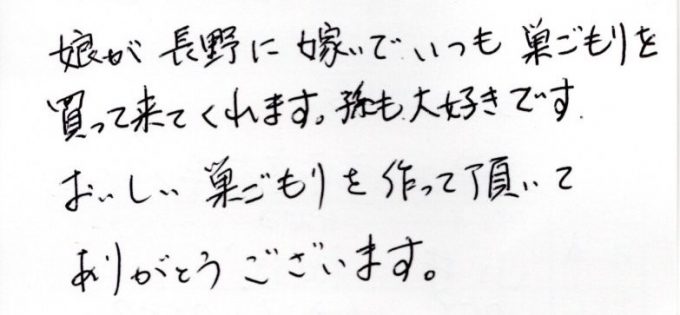 娘が長野に嫁いでいつも巣ごもりを
買って来てくれます。孫も大好きです
おいしい巣ごもりを作って頂いて
ありがとうございます。